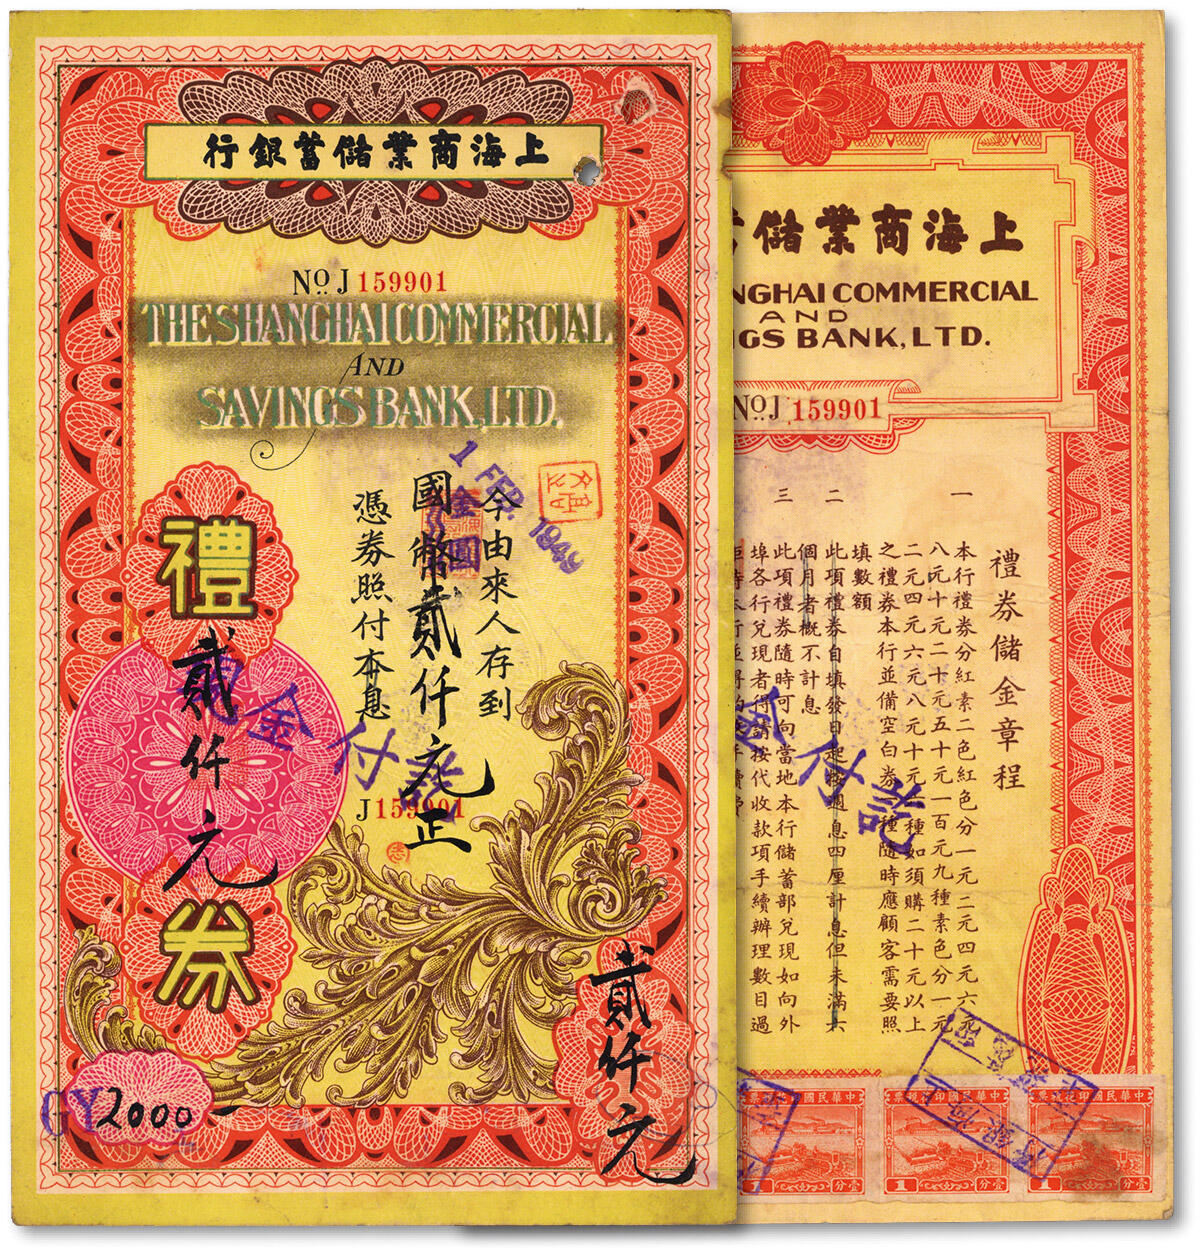 上海商業儲蓄銀行
No. J 159901
THE SHANGHAI COMMERCIAL
AND
SAVINGS BANK, LTD.
1 FEB 1949
今由來人存到
國幣貳仟元正
金圓
憑券照付本息
J 159901
禮券
貳仟元
金付訖
貳仟元
GY2000
上海商業儲
NGHAI COMMERCIAL
AND
GS BANK, LTD.
No. J 159901
禮券儲金章程
一
本行禮券分紅素二色紅色分一元二元四元六元
八元十元二十元五十元一百元九種素色分一元
二元四元六元八元十元六種如須購二十元以上
之禮券本行並備空白券一種隨時應顧客需要照
填數額
二
此項禮券自填發日起按週息四厘計息但未滿六
個月者概不計息
三
此項禮券隨時可向當地本行儲蓄部兌現如向外
埠各行兌現者得請按代收款項手續辦理數目過
金付訖
中華民國印花稅票
中華民國印花稅票
中華民國印花稅票
分壹
1 分壹
1 分壹